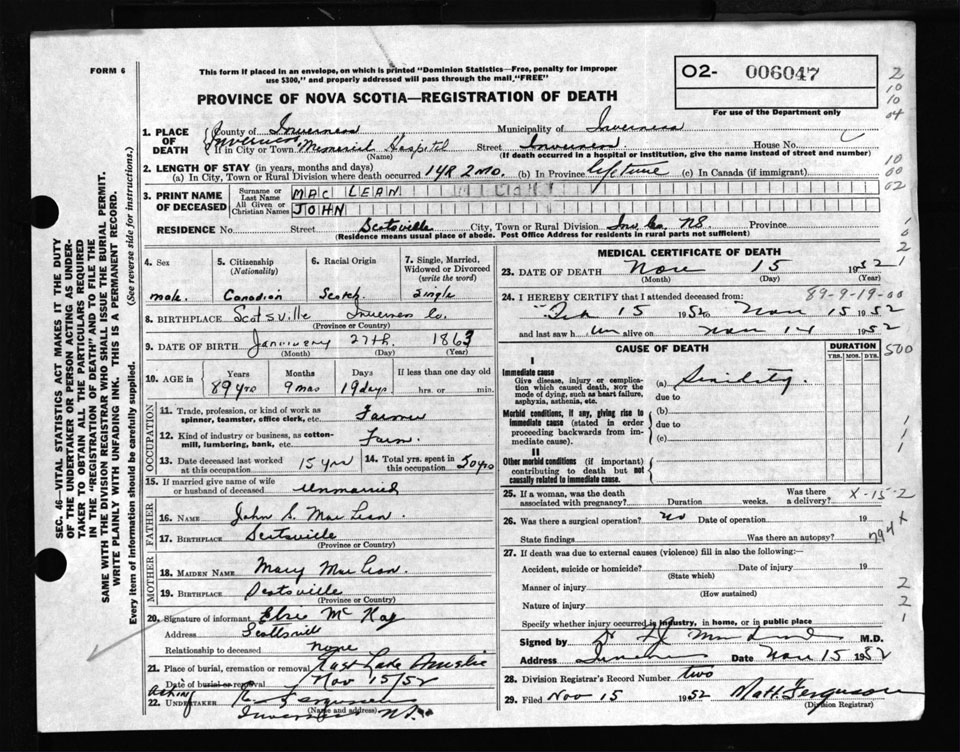 FORM 6
This form if placed in an envelope, on which is printed "Dominion Statistics—Free, penalty for improper
use $300," and properly addressed will pass through the mail, "FREE"
PROVINCE OF NOVA SCOTIA—REGISTRATION OF DEATH
O2- 006047
For use of the Department only
2
10
10
04
10
00
02
SEC. 46—VITAL STATISTICS ACT MAKES IT THE DUTY
OF THE UNDERTAKER OR PERSON ACTING AS UNDER-
TAKER TO OBTAIN ALL THE PARTICULARS REQUIRED
IN THE "REGISTRATION OF DEATH" AND TO FILE THE
SAME WITH THE DIVISION REGISTRAR WHO SHALL ISSUE THE BURIAL PERMIT.
WRITE PLAINLY WITH UNFADING INK. THIS IS A PERMANENT RECORD.
Every item of information should be carefully supplied. (See reverse side for instructions.)
1. PLACE OF DEATH County of Inverness Municipality of Inverness
If in City or Town Inverness Memorial Hospital (Name) Street Inverness House No.
(If death occurred in a hospital or institution, give the name instead of street and number)
2. LENGTH OF STAY (in years, months and days)
(a) In City, Town or Rural Division where death occurred 1 YR 2 MO. (b) In Province lifetime (c) In Canada (if immigrant)
3. PRINT NAME OF DECEASED Surname or Last Name MAC LEAN
All Given or Christian Names JOHN
RESIDENCE No. Street Scotsville City, Town or Rural Division Inv. Co. NS. Province
(Residence means usual place of abode. Post Office Address for residents in rural parts not sufficient)
4. Sex
male.
5. Citizenship (Nationality)
Canadian
6. Racial Origin
Scotch.
7. Single, Married, Widowed or Divorced (write the word)
Single
8. BIRTHPLACE Scotsville Inverness Co.
(Province or Country)
9. DATE OF BIRTH 27th. 1863
(Month) (Day) (Year)
10. AGE in Years Months Days If less than one day old
89 yrs 9 mos 19 days hrs. or min.
OCCUPATION
11. Trade, profession, or kind of work as spinner, teamster, office clerk, etc. Farmer
12. Kind of industry or business, as cotton-mill, lumbering, bank, etc. Farm.
13. Date deceased last worked at this occupation 15 yrs
14. Total yrs. spent in this occupation 50 yrs
15. If married give name of wife or husband of deceased Unmarried
FATHER
16. NAME John S. Mac Lean.
17. BIRTHPLACE Scotsville
(Province or Country)
MOTHER
18. MAIDEN NAME Mary Mac Lean.
19. BIRTHPLACE Scotsville
(Province or Country)
20. Signature of informant Mc Kay
Address Scottsville
Relationship to deceased none
21. Place of burial, cremation or removal East Lake Ainslie
Date of burial or removal Nov 15/52
Acting
22. UNDERTAKER Ferguson
(Name and address)
Inverness N.S.
MEDICAL CERTIFICATE OF DEATH
23. DATE OF DEATH Nov 15 1952
(Month) (Day) (Year)
24. I HEREBY CERTIFY that I attended deceased from: 89-9-19-00
15 1952 to Nov 15 1952
and last saw him alive on Nov 14 1952
CAUSE OF DEATH
DURATION
YRS. MOS. DYS.
500
I
Immediate cause
Give disease, injury or complication which caused death, NOT the mode of dying, such as heart failure, asphyxia, asthenia, etc.
(a) Senility.
due to
Morbid conditions, if any, giving rise to immediate cause (stated in order proceeding backwards from immediate cause).
(b)
due to
(c)
II
Other morbid conditions (if important) contributing to death but not causally related to immediate cause.
25. If a woman, was the death associated with pregnancy? Duration weeks. Was there a delivery? X-15-2
26. Was there a surgical operation? no Date of operation 19
State findings Was there an autopsy?
794X
27. If death was due to external causes (violence) fill in also the following:—
Accident, suicide or homicide? Date of injury 19
(State which)
Manner of injury
(How sustained)
Nature of injury
Specify whether injury occurred in industry, in home, or in public place
2
2
1
Signed by M.D.
Address Inverness Date Nov 15 1952
28. Division Registrar's Record Number two
29. Filed Nov 15 1952 Matt. Ferguson
(Division Registrar)